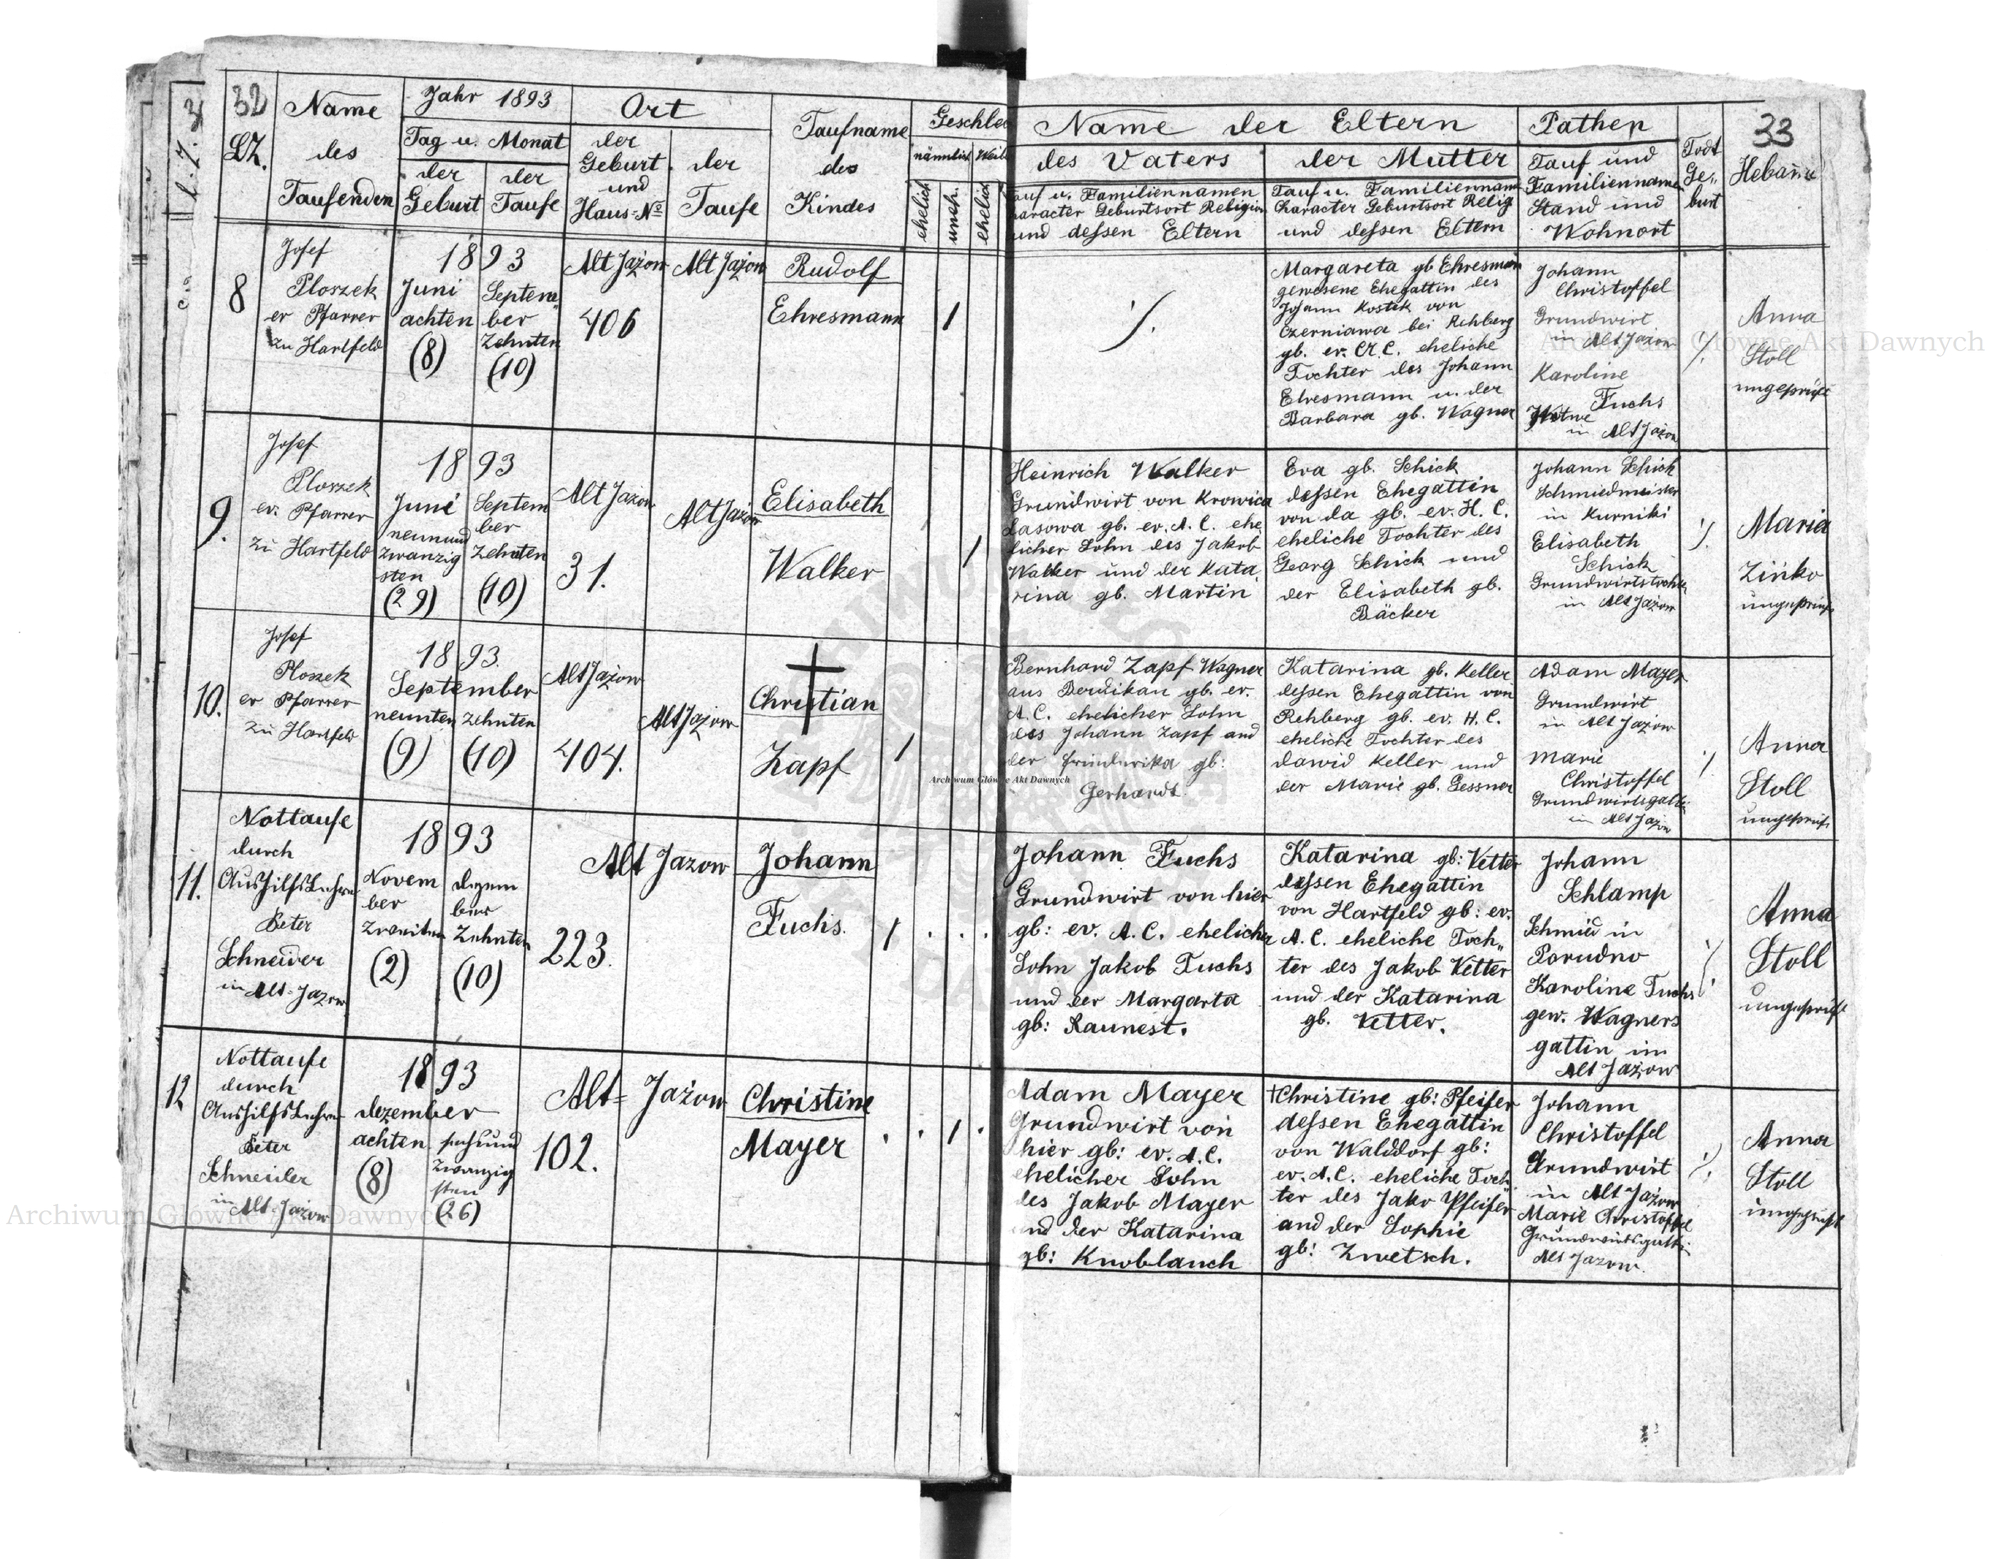 32
LZ.
Name
des
Taufenden
Jahr 1893
Tag u. Monat
der
Geburt
der
Taufe
Ort
der
Geburt
und
Haus-No
der
Taufe
Taufname
des
Kindes
Geschlec
männlich Weib
ehelich
uneh.
ehelich
Name der Eltern
des Vaters
Tauf u. Familiennamen
Character Geburtsort Religion
und dessen Eltern
der Mutter
Tauf u. Familiennam
Character Geburtsort Relig
und dessen Eltern
Pathen
Tauf und
Familienname
Stand und
Wohnort
Todt
Ge-
burt
33
Hebame
8
Josef
Ploszek
ev Pfarrer
zu Hartfeld
1893
Juni
achten
(8)
Septem
ber
Zehnten
(10)
Alt Jazow
406
Alt Jazow
Rudolf
Ehresmann
1
./.
Margareta gb Ehresman
gewesene Ehegattin des
Johann Kostek von
Czerniawa bei Rehberg
gb. ev. A.C. eheliche
Tochter des Johann
Ehresmann u. der
Barbara gb. Wagner
Johann
Christoffel
Grundwirt
in Alt Jazow
Karoline
Fuchs
Witwe
in Alt Jazow
./.
Anna
Stoll
ungeprüft
9.
Josef
Ploszek
ev. Pfarrer
zu Hartfeld
1893
Juni
neunund
zwanzig
sten
(29)
Septem
ber
Zehnten
(10)
Alt Jazow
31.
Alt Jazow
Elisabeth
Walker
1
Heinrich Walker
Grundwirt von Krowica
Lasowa gb. ev. A. C. ehe
licher Sohn des Jakob
Walker und der Kata
rina gb. Martin
Eva gb. Schick
dessen Ehegattin
von da gb. ev. H. C.
eheliche Tochter des
Georg Schick und
der Elisabeth gb.
Bäcker
Johann Schick
Schmiedmeister
in Kurniki
Elisabeth
Schick
Grundwirtstochter
in Alt Jazow
./.
Maria
Zinko
ungeprüft
10.
Josef
Ploszek
ev Pfarrer
zu Hartfeld
1893.
September
neunten
(9)
zehnten
(10)
Alt Jazow
404.
Alt Jazow
Christian
Zapf
1
Bernhard Zapf Wagner
aus Berdikau gb. ev.
A. C. ehelicher Sohn
des Johann Zapf und
der Friederika gb:
Gerhardt
Katarina gb. Keller
dessen Ehegattin von
Rehberg gb. ev. H. C.
eheliche Tochter des
Dawid Keller und
der Marie gb. Gessner
Adam Mayer
Grundwirt
in Alt Jazow
Marie
Christoffel
Grundwirtsgattin
in Alt Jazow
./
Anna
Stoll
ungeprüft
11.
Nottaufe
durch
Aushilfslehrer
Peter
Schneider
in Alt-Jazow
1893
Novem
ber
zweiten
(2)
Dezem
ber
Zehnten
(10)
Alt Jazow
223.
Johann
Fuchs.
1 . . .
Johann Fuchs
Grundwirt von hier
gb: ev. A. C. ehelicher
Sohn Jakob Fuchs
und der Margarta
gb: Raunest.
Katarina gb: Vetter
dessen Ehegattin
von Hartfeld gb: ev.
A. C. eheliche Toch„
ter des Jakob Vetter
und der Katarina
gb. Vetter.
Johann
Schlamp
Schmid in
Porudno
Karoline Fuchs
gew. Wagners
gattin in
Alt Jazow
./.
Anna
Stoll
ungeprüft
12
Nottaufe
durch
Aushilfslehrer
Peter
Schneider
in Alt-Jazow
1893
Dezember
achten
(8)
sechsund
zwanzig
sten
(26)
Alt= Jazow
102.
Christine
Mayer
. . 1 .
Adam Mayer
Grundwirt von
hier gb: ev. A.C.
ehelicher Sohn
des Jakob Mayer
und der Katarina
gb: Knoblauch
+Christine gb: Pfeifer
dessen Ehegattin
von Walddorf gb:
ev. A. C. eheliche Toch
ter des Jako Pfeifer
und der Sophie
gb: Zwetsch.
Johann
Christoffel
Grundwirt
in Alt Jazow
Marie Christoffel
Grundwirtsgattin
Alt Jazow.
./.
Anna
Stoll
ungeprüft
Archiwum Główne Akt Dawnych
Archiwum Główne Akt Dawnych
Archiwum Główne Akt Dawnych